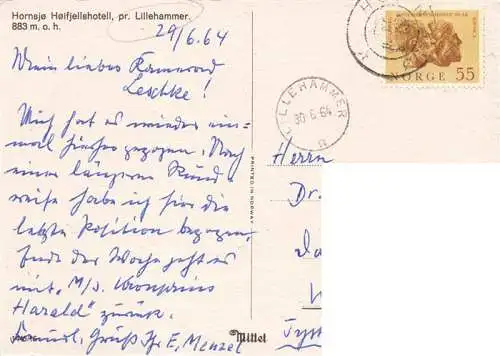 Hornsjø Høifjellshotell, pr. Lillehammer.
883 m. o. h.
29/6.64
Mein lieber Kamerad
Leschke!
Mich hat es wieder ein-
mal hierher gezogen. Nach
einer längeren Rund-
reise habe ich hier die
letzte Position bezogen,
Ende der Woche geht es
mit „M/S. Kronprins
Harald" zurück.
Freundl. Grüß Ihr E. Menzel
Mittet
PRINTED IN NORWAY
NORGE 55
LILLEHAMMER
30 6 64
B
Herrn
Dr.